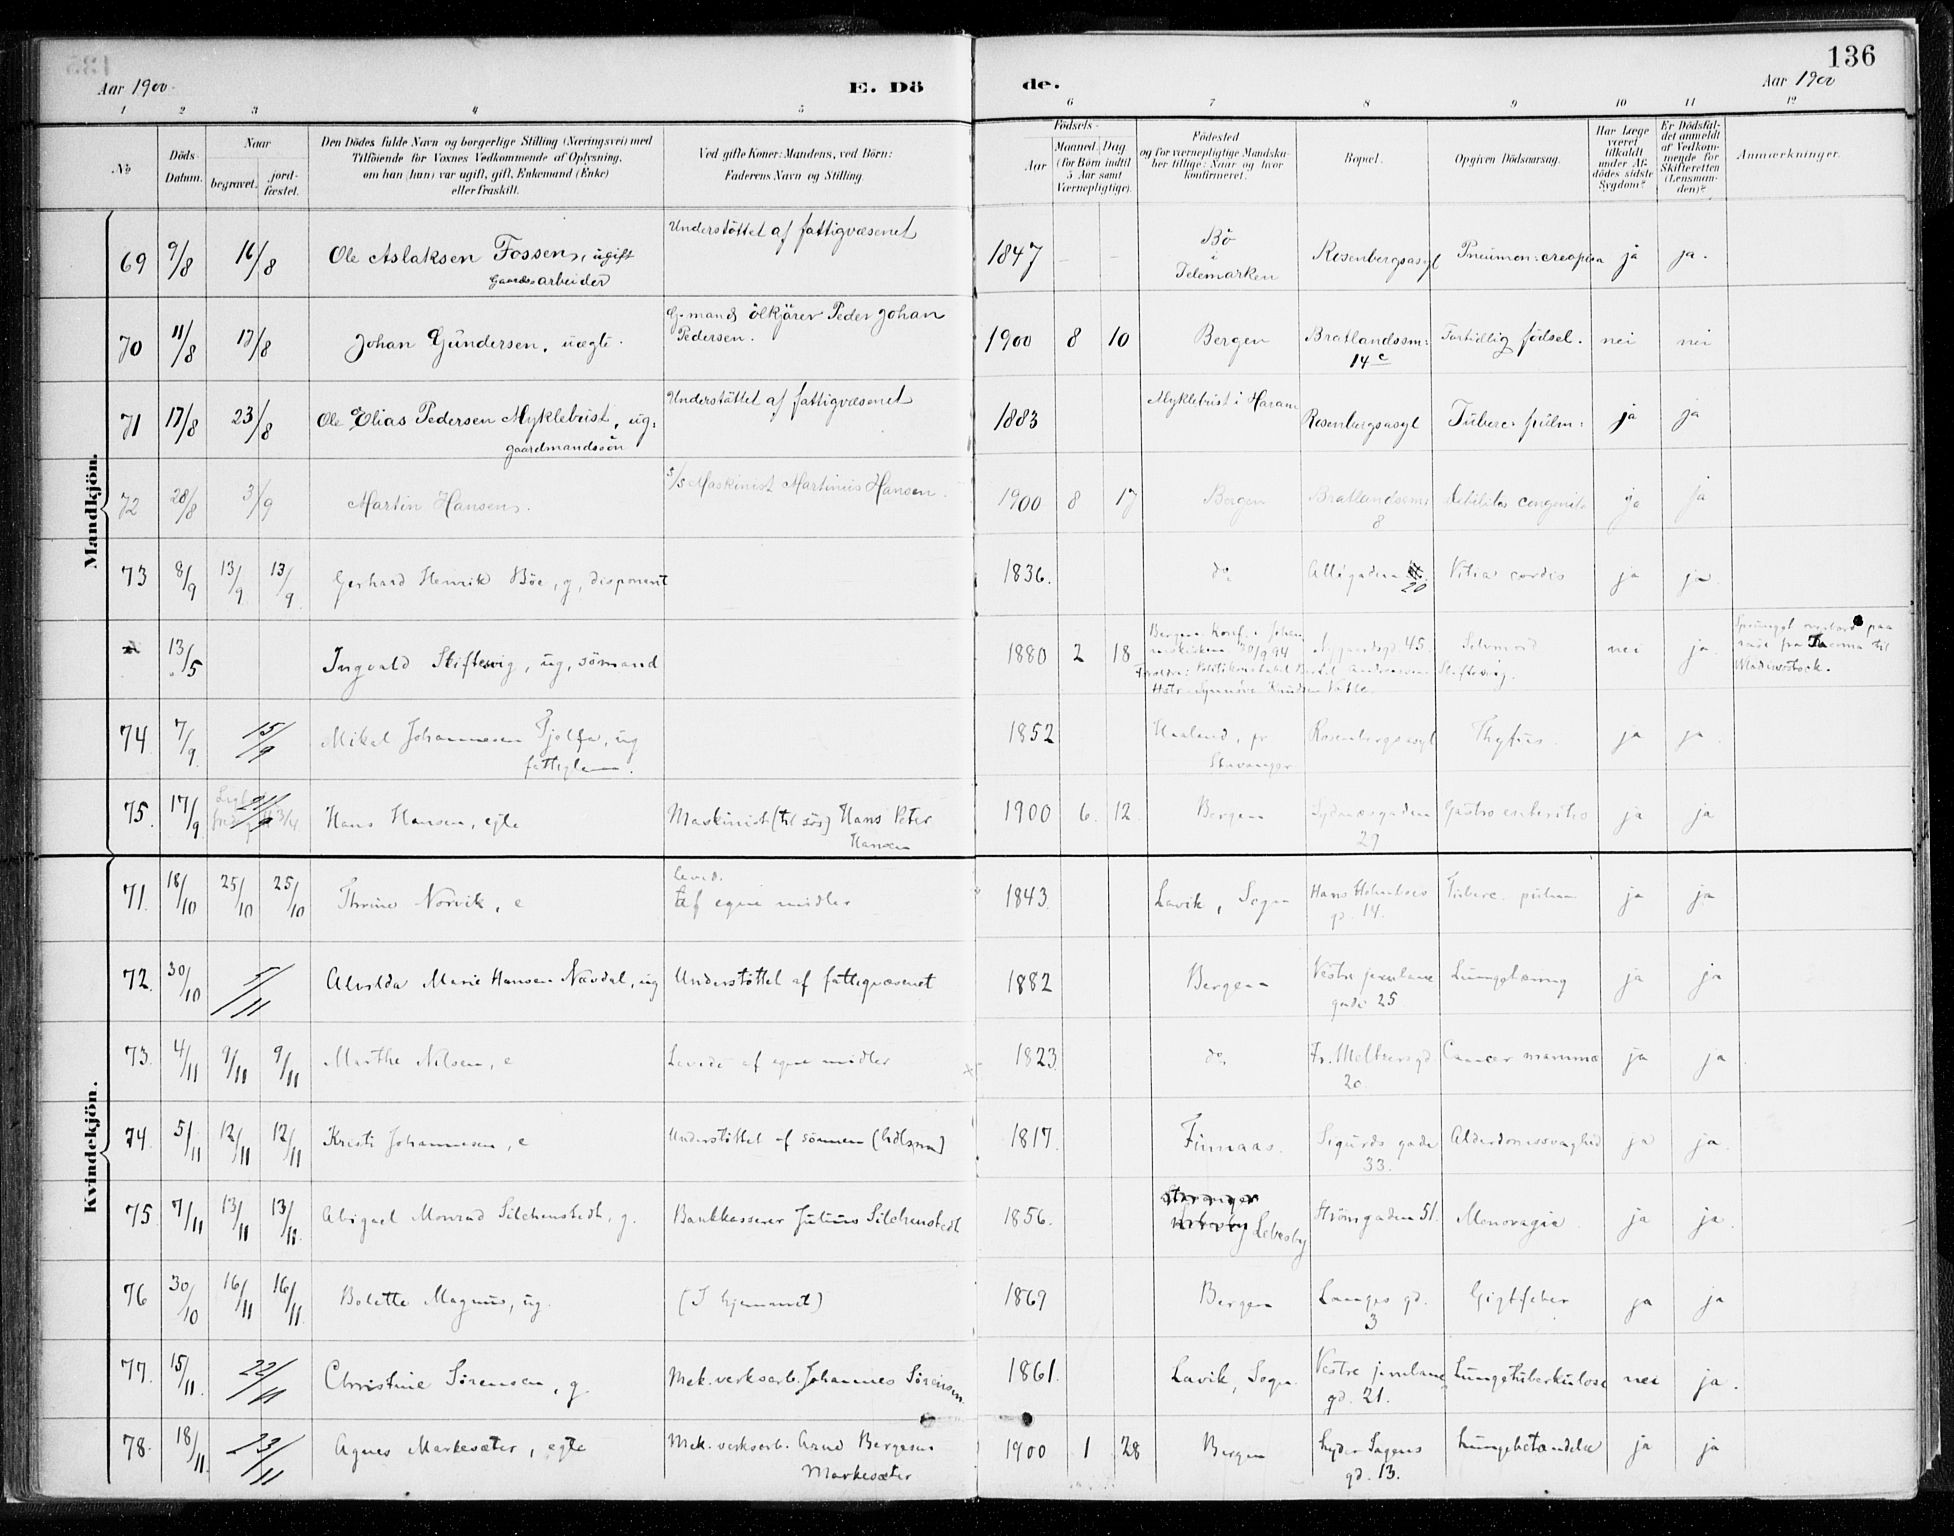 136
Aar 1900.
E. Dö
de.
Aar 1900
1 2 3 4 5 6 7 8 9 10 11 12
No
Döds-Datum.
Naar
begravet.
jord-fæstet.
Den Dödes fulde Navn og borgerlige Stilling (Næringsvei) med
Tilföiende for Voxnes Vedkommende af Oplysning,
om han (hun) var ugift, gift, Enkemand (Enke)
eller fraskilt.
Ved gifte Koner: Mandens, ved Börn:
Faderens Navn og Stilling.
Födsels-
Aar
Maaned. Dag
(for Börn indtil
5 Aar samt
Værnepligtige).
Födested
og for værnepligtige Mandska-
ber tillige: Naar og hvor
konfirmeret.
Bopæl.
Opgiven Dödsaarsag.
Har Læge
været
tilkaldt
under Af-
dödes sidste
Sygdom?
Er Dödsfal-
det anmeldt
af Vedkom-
mende for
Skifteretten
(Lensman-
den)?
Anmærkninger.
Mandkjön.
69 9/8 16/8 Ole Aslaksen Fossen, ugift
gaardsarbeider
Understöttet af fattigvæsenet
1847 – – Bö
i
Telemarken
Rosenbergsasyl Pneumon: ja ja.
70 11/8 17/8 Johan Gundersen, uægte.
G. mands ölkjörer Peder Johan
Pedersen.
1900 8 10 Bergen Bratlandssm:
14c
Fortidlig födsel. nei nei
71 17/8 23/8 Ole Elias Pedersen Myklebust, ug:
gaardmandssön
Understöttet af fattigvæsenet
1883 Myklebust i Haram Rosenbergsasyl Tuberc: pulm: ja ja
72 28/8 3/9 Martin Hansen.
Maskinist Martinius Hansen.
1900 8 17 Bergen Bratlandssm:
8
debilitas congenita ja ja
73 8/9 13/9 13/9 Gerhard Henrik Böe, g, disponent
1836. do Allégaden
20
Vitia cordis ja ja.
13/5 Ingvald Stiftesvig, ug, sömand
1880 2 18 Bergen. Konf. i Johan
neskirken 30/9 94
Nygaardsgd 45. Selvmord nei ja.
Forældre: Politikonstabel Andreassen Stiftesvig.
Hstr. Synnöve Knudsen
Sprunget overbord paa
reise fra Tacoma til
Wladiwostock.
74 7/9 15/9 Mikal Johannesen Tjolfa, ug
fattiglem.
1852 Haaland, pr
Stavanger
Rosenbergsasyl Thyfus. ja ja.
75. 17/9 21/9 Hans Hansen, egte
Maskinist (til sös) Hans Peter
Hansen
1900 6. 12. Bergen Sydnæsgaden
29
Gastro enteritis ja ja
Kvindekjön.
71. 18/10 25/10 25/10 Thrine Norvik, e
Leved.
af egne midler
1843. Lavik, Sogn Hans Holmboes
gd. 14.
Tuberc. pulm ja ja
72. 30/10 5/11 Alvilda Marie Hansen Navdal, ug
Understöttet af fattigvæsenet
1882 Bergen Vestre jernbane
gade 25
Lungetæring ja ja
73. 4/11 9/11 9/11 Marthe Nilsen, e
Levede af egne midler
1823. do, Fr. Meltzersgd
20
Cancer mamma ja ja.
74. 5/11 12/11 12/11 Kristi Johannesen, e
Understöttet af sönnen
1817. Finnaas. Sigurds gade
33.
Alderdomssvaghed ja ja.
75 7/11 13/11 13/11 Abigael Monrad Silchenstedt, g.
Bankkasserer Julius Silchenstedt
1856. Lebesby Strömgaden 51. Menoragia. ja ja.
76 30/10 16/11 16/11 Bolette Magnus, ug.
(I hjemmet)
1869 Bergen Langes gd.
3
Gigtfeber ja ja
77. 15/11. 22/11 Christine Sörensen, g.
Mek. verksarb. Johannes Sörensen
1861. Lavik, Sogn. Vestre jernbane
gd. 21.
Lungetuberkulose nei ja.
78. 18/11. 23/11 Agnes Markesæter, egte
Mek. verksarb. Arnd Bergesen
Markesæter
1900 1 28 Bergen Lyder Sagens
gd. 13.
Lungebetændelse ja ja